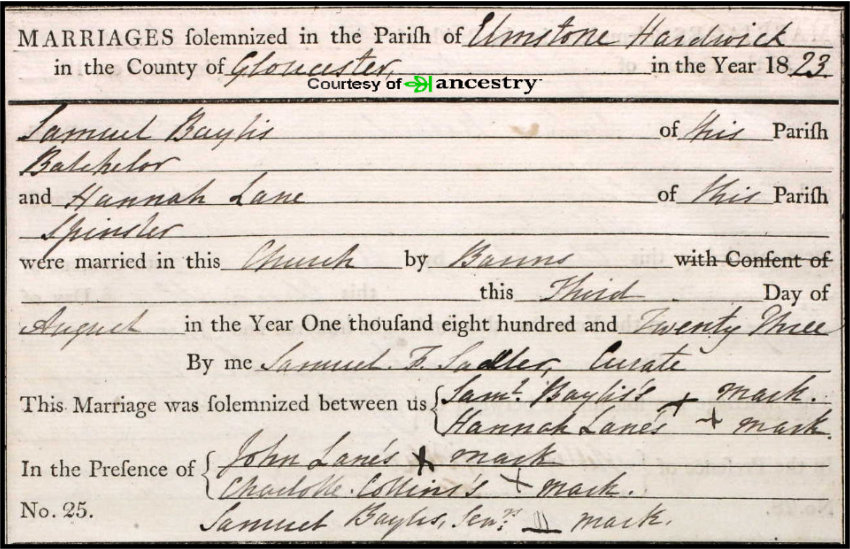 MARRIAGES ſolemnized in the Pariſh of Elmstone Hardwick
in the County of Gloucester, in the Year 1823
Courtesy of ancestry
Samuel Baylis of this Pariſh
Batchelor
and Hannah Lane of this Pariſh
Spinster
were married in this Church by Banns with Conſent of
this Third Day of
August in the Year One thouſand eight hundred and Twenty Three
By me Samuel. F. Sadler, Curate
This Marriage was ſolemnized between us { Saml. Baylis's + mark.
Hannah Lane's + mark.
In the Preſence of { John Lane's + mark
Charlotte Collins's + mark.
No. 25. Samuel Baylis, Senr. mark.